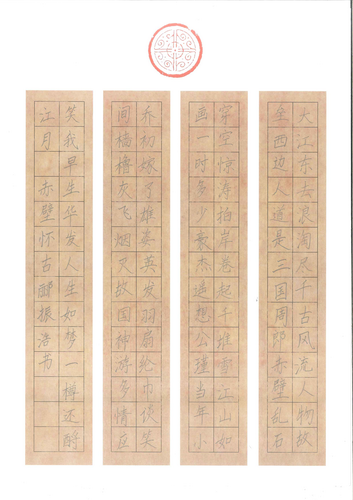 大江东去浪淘尽千古风流人物故
垒西边人道是三国周郎赤壁乱石
穿空惊涛拍岸卷起千堆雪江山如
画一时多少豪杰遥想公瑾当年小
乔初嫁了雄姿英发羽扇纶巾谈笑
间樯橹灰飞烟灭故国神游多情应
笑我早生华发人生如梦一樽还酹
江月 赤壁怀古 振浩书